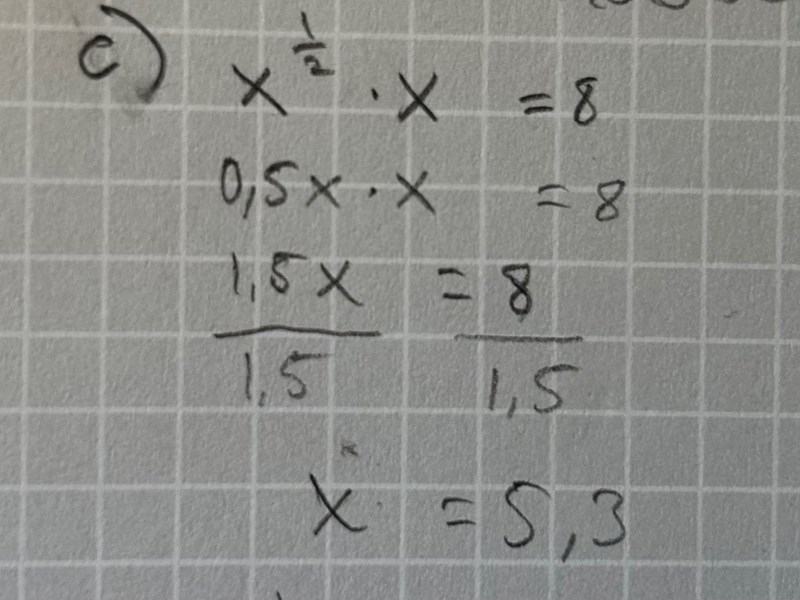 c) x^{1/2} · x = 8
0,5x · x = 8
1,5x = 8
1,5 1,5
x = 5,3